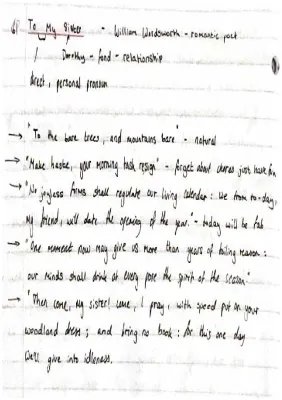 6) To My Sister - William Wordsworth - romantic poet
Dorothy - fond - relationship
direct, personal pronoun
→ "To the bare trees, and mountains bare" - natural
→ "Make haste, your morning task resign" - forget about chores just have fun
→ "No joyless forms shall regulate our living calendar: We from to-day,
my friend, will date the opening of the year." - today will be fab
→ "One moment now may give us more than years of toiling reason:
our minds shall drink at every pore the spirit of the season."
→ "Then come, my sister! come, I pray, with speed put on your
woodland dress; and bring no book: for this one day
we'll give into idleness.